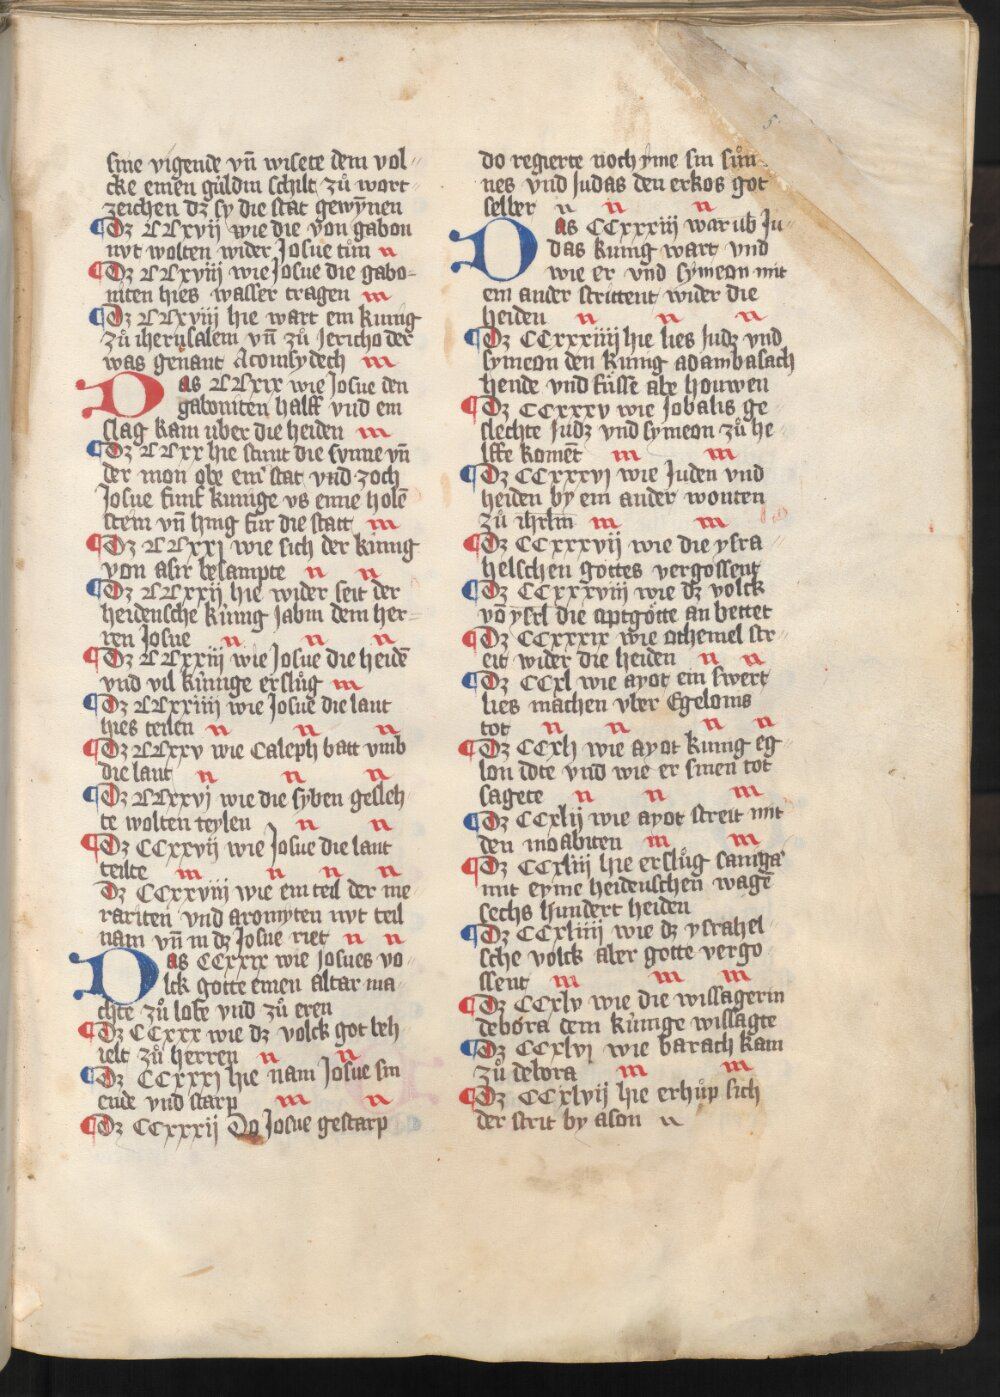 sine vigende vn̄ wisete dem vol〃
cke einen guldin schilt zů wort〃
zeichen dz sy die stat gewẏnnen
Dz CCxvij wie die von gabon
nvt wolten wider Josue tůn n
Dz CCxviij wie Josue die gabo-
niten hies wasser tragen m
Dz CCxviij hie wart ein kunig
zů iherusalem vn̄ zů Jericho der
was genant Acomsydech m
Das CCxix wie Josue den
gaboniten halff vnd ein
slag kam uber die heiden m
Dz CCxx hie stunt die sunne vn̄
der mon obe einr stat vnd zoch
Josue funf kunige vs eime holē
stein vn̄ hing fur die statt m
Dz CCxxj wie sich der kunig
von asir besampte n n
Dz CCxxij hie wider seit der
heidensche kunig Jabin dem her-
ren Josue n n n
Dz CCxxiij wie Josue die heidē
vnd vil kunige erslůg m
Dz CCxxiiij wie Josue die lant
hies teilen n n n
Dz CCxxv wie Caleph batt vmb
die lant n n n
Dz CCxxvj wie die syben geslech〃
te wolten teylen n n
Dz CCxxvij wie Josue die lant
teilte m n n n
Dz CCxxviij wie ein teil der me〃
rariten vnd aromyten nvt teil
nam vn̄ in dz Josue riet n n
Das CCxxix wie Josues vo〃
lck gotte einen altar ma〃
chte zů lobe vnd zů eren
Dz CCxxx wie dz volck got beh〃
ielt zů herren n n
Dz CCxxxj hie nam Josue sin
ende vnd starp m n
Dz CCxxxij Do Josue gestarp
do regierte noch ẏme sin sůn〃
nes vnd Judas den erkos got
selber n n n
Das CCxxxiij warūb Ju〃
das kunig wart vnd
wie er vnd symeon mit
ein ander strittent wider die
heiden n n n
Dz CCxxxiiij hie lies Judz vnd
symeon den kunig adambasach
hende vnd fusse abe houwen
Dz CCxxxv wie Jobalis ge〃
slechte Judz vnd symeon zů he〃
lffe komēt m m
Dz CCxxxvj wie Juden vnd
heiden by ein ander wonten
zů ihrlm m m
Dz CCxxxvij wie die ysra〃
helschen gottes vergossent
Dz CCxxxviij wie dz volck
vō ysrl die aptgötte an bettet
Dz CCxxxix wie othemel str〃
eit wider die heiden n n
Dz CCxl wie ayot ein swert
lies machen vber Egeloms
tot n n n n
Dz CCxlj wie ayot kunig eg〃
lon dote vnd wie er sinen tot
sagete n n m
Dz CCxlij wie ayot streit mit
den moabiten m m
Dz CCxliij hie erslůg samgar
mit eyme heidenschen wagē
sechs hundert heiden
Dz CCxliiij wie dz ysrahel〃
sche volck aber gotte vergo〃
ssent m m m
Dz CCxlv wie die wissagerin
debora dem kunige wissagte
Dz CCxlvj wie barach kam
zů debora m m
Dz CCxlvij hie erhůp sich
der strit by ason n